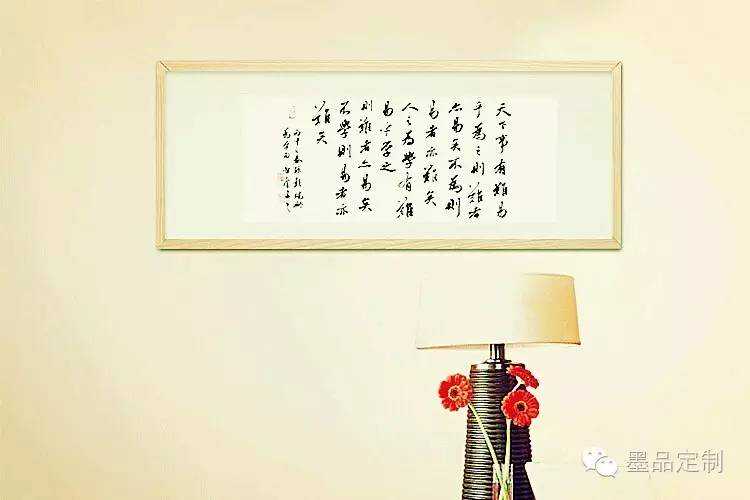 天下事有難易
乎為之則難者
亦易矣不為則
易者亦難矣
人之為學有難
易乎學之
則難者亦易矣
不學則易者亦
難矣
墨品定制